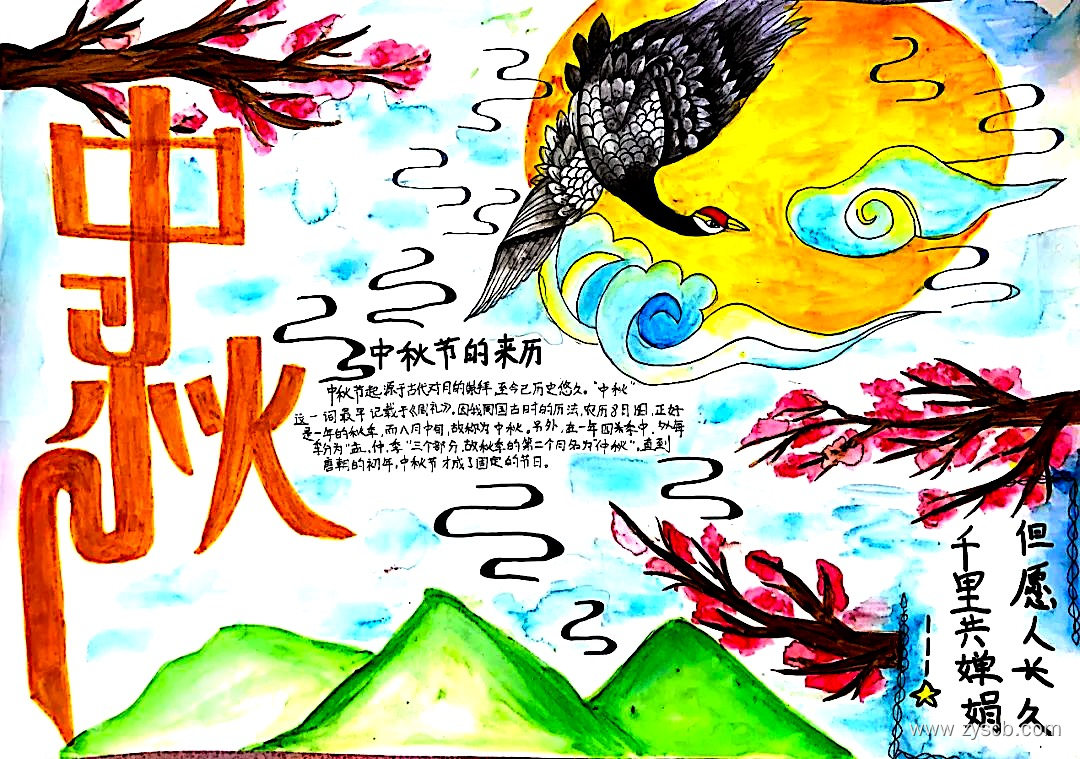 中秋
中秋节的来历
中秋节起源于古代对月的崇拜,至今已历史悠久。"中秋"
这一词最早记载于《周礼》。因我国古时的历法,农历8月15日,正好
是一年的秋季,而八月中旬,故称为中秋。另外,在一年四季中,每
季分为"孟、仲、季"三个部分,故秋季的第二个月名为"仲秋",直到
唐朝的初年,中秋节才成了固定的节日。
但愿人长久
千里共婵娟
www.zyscb.com